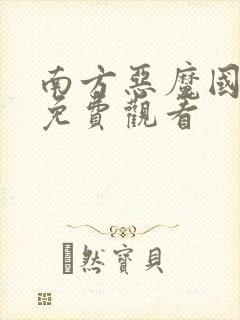 南方惡魔國
免費觀看
然寶貝